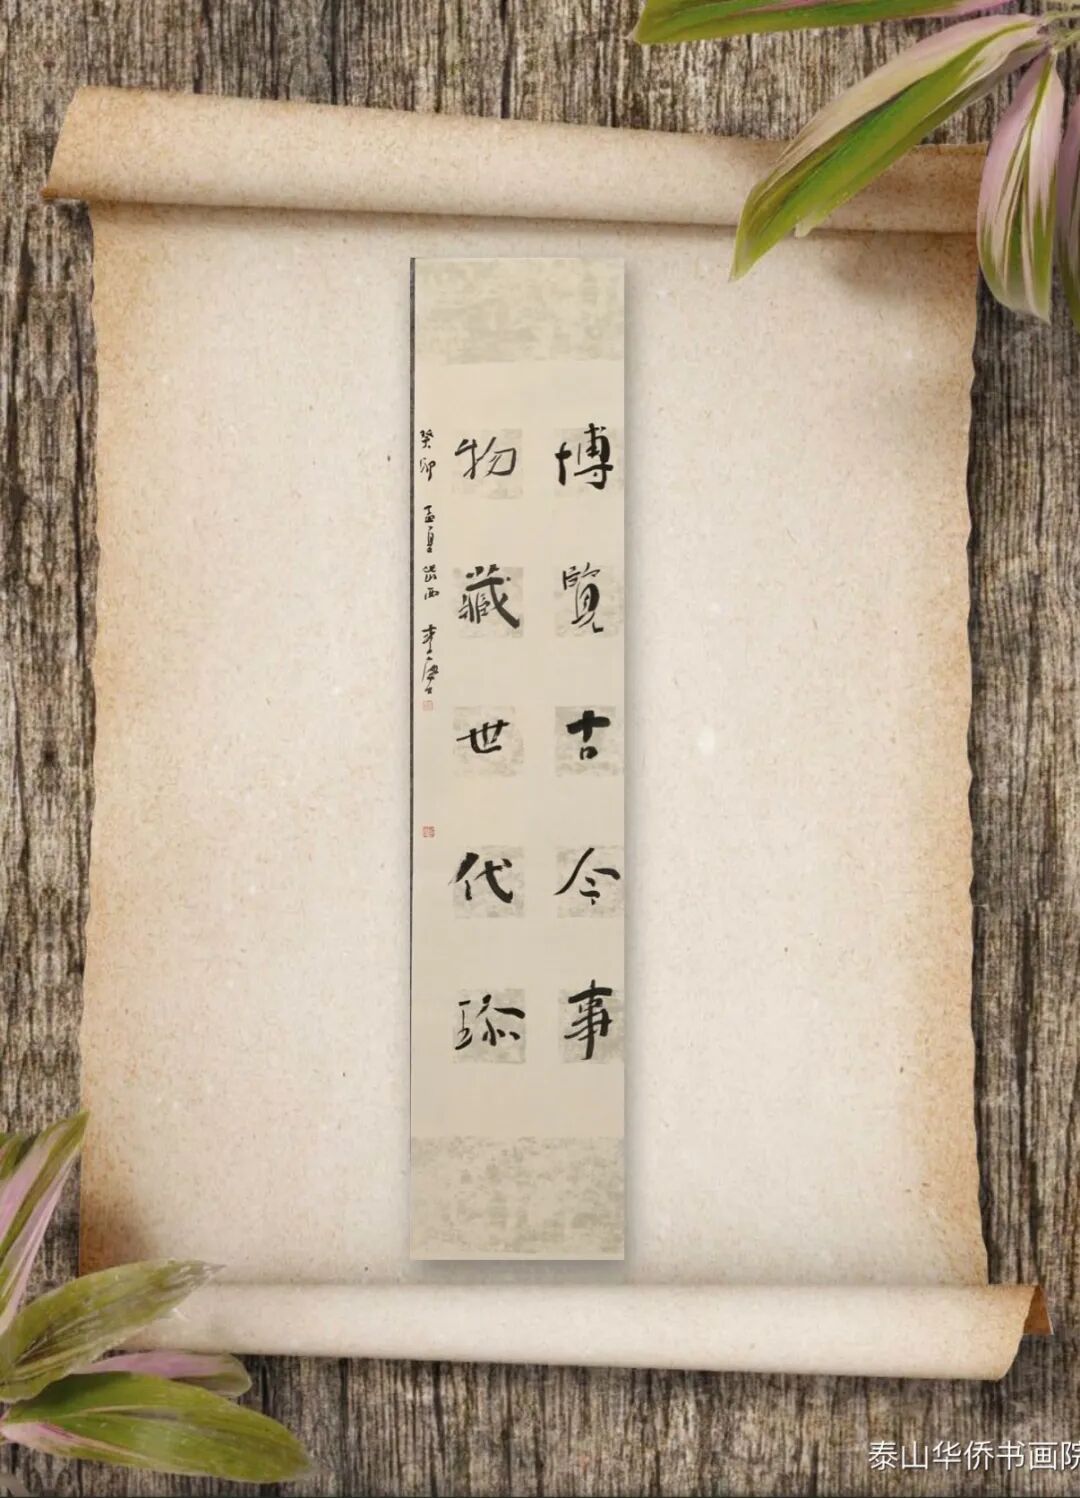 博覽古今事
物藏世代珎
癸卯 孟夏 岱西
泰山华侨书画院